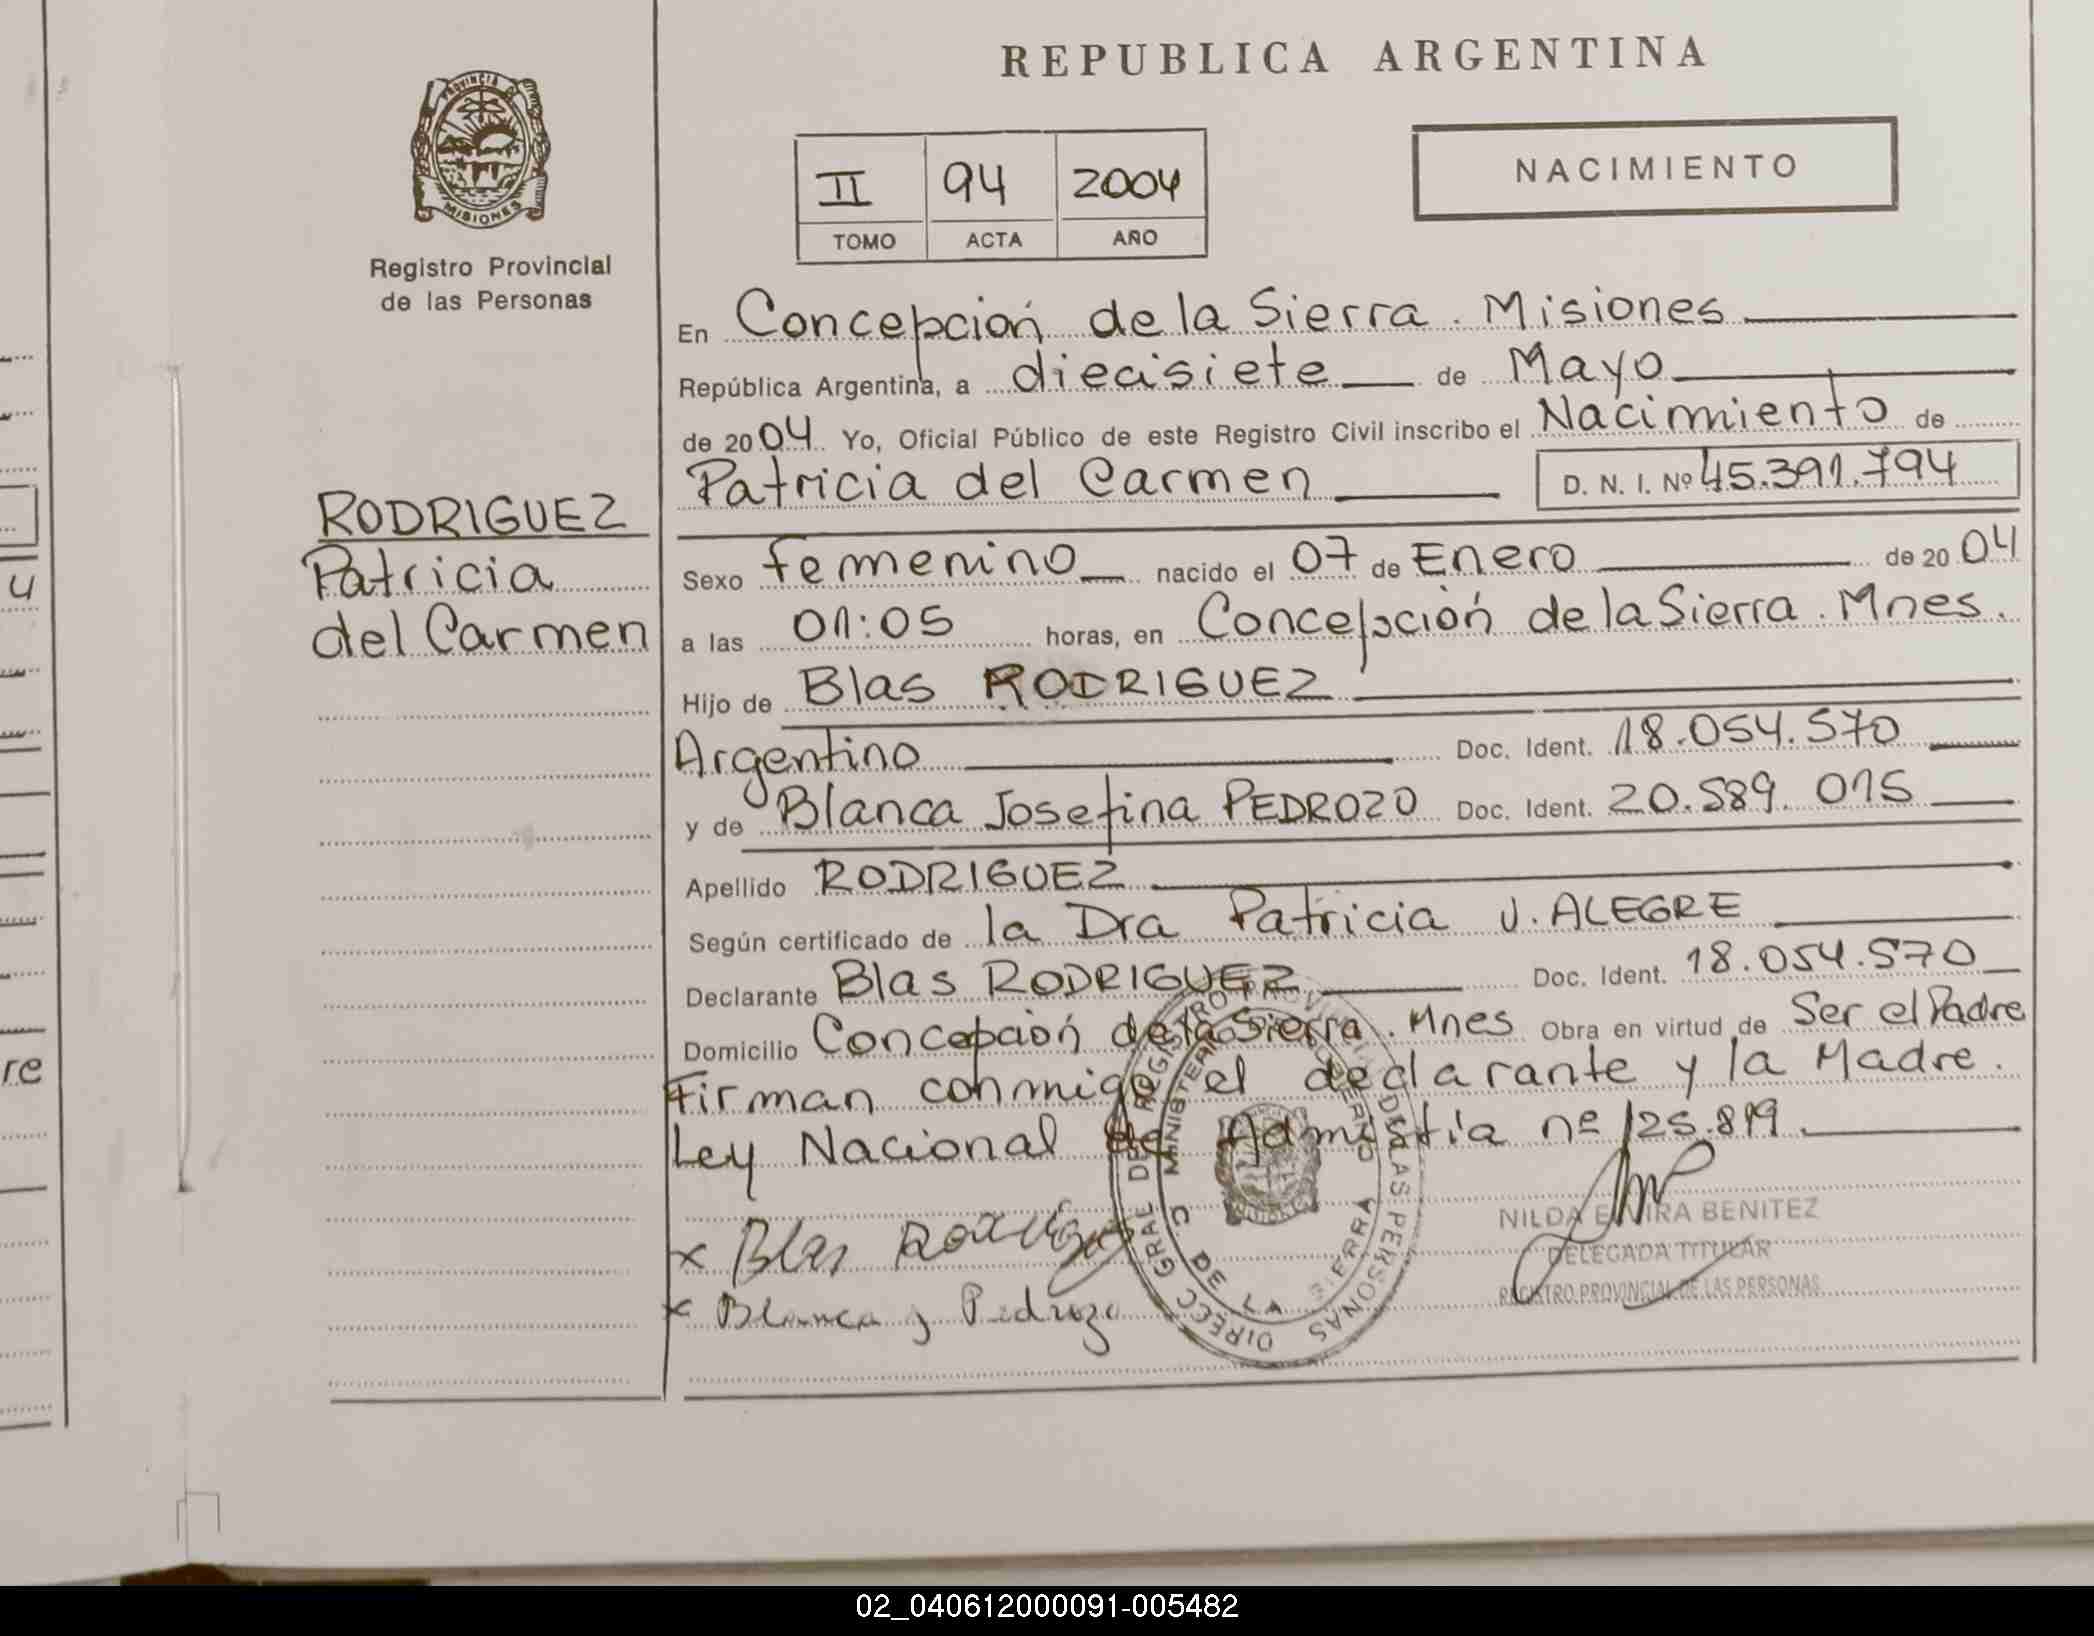 REPUBLICA ARGENTINA
PROVINCIA DE
MISIONES
Registro Provincial
de las Personas
II 94 2004
TOMO ACTA AÑO
NACIMIENTO
En Concepción de la Sierra. Misiones
República Argentina, a diecisiete de Mayo
de 2004 Yo, Oficial Público de este Registro Civil inscribo el Nacimiento de
Patricia del Carmen D. N. I. Nº 45.391.794
RODRIGUEZ
Patricia
del Carmen
Sexo femenino nacido el 07 de Enero de 2004
a las 01:05 horas, en Concepción de la Sierra. Mnes.
Hijo de Blas RODRIGUEZ
Argentino Doc. Ident. 18.054.570
y de Blanca Josefina PEDROZO Doc. Ident. 20.589.015
Apellido RODRIGUEZ
Según certificado de la Dra Patricia J. ALEGRE
Declarante Blas RODRIGUEZ Doc. Ident. 18.054.570
Domicilio Concepción de la Sierra. Mnes Obra en virtud de Ser el Padre
Firman conmigo el declarante y la Madre.
Ley Nacional de nº 25.819.
x Blas Rodriguez
x Blanca J Pedrozo
DIRECC GRAL DE REGISTRO PROVINCIAL DE LAS PERSONAS
MINISTERIO DE GOBIERNO
C. DE LA SIERRA
NILDA ELVIRA BENITEZ
DELEGADA TITULAR
REGISTRO PROVINCIAL DE LAS PERSONAS
4
re
02_040612000091-005482